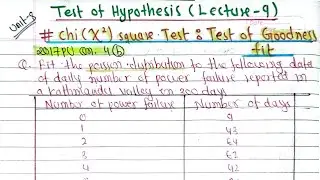 Unit-3
Test of Hypothesis (Lecture-9)
# chi (X²) square Test : Test of Goodness
fit
2017 PU Qn. 4(b)
Q. Fit the poison distribution to the following data
of daily number of power failure reported in
a kathmandu valley in 200 days
Number of power failure Number of days
0 9
1 43
2 64
3 62
4 42